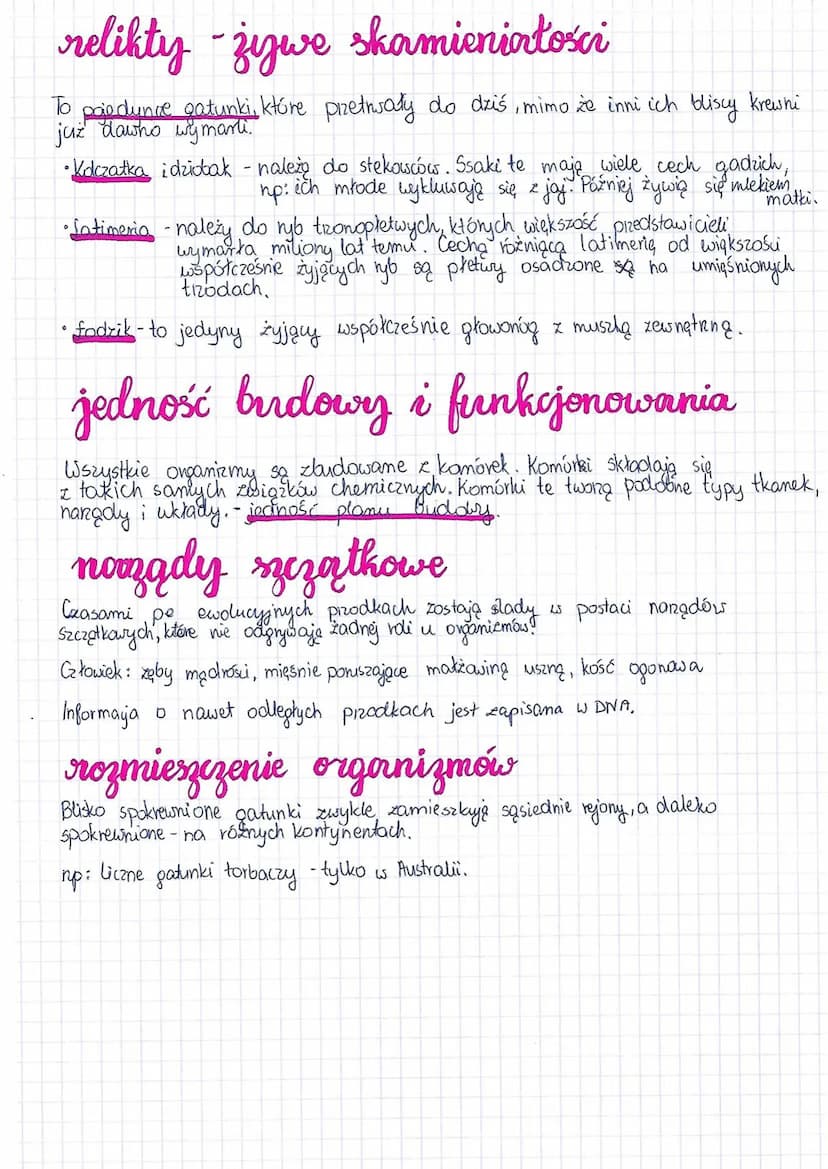 relikty - żywe skamieniałości
To pojedyncze gatunki, które przetrwały do dziś, mimo że inni ich bliscy krewni
już dawno wymarli.
• Kolczatka i dziobak - należą do stekowców. Ssaki te mają wiele cech gadzich,
np: ich młode wykluwają się z jaj. Później żywią się mlekiem
matki.
• Latimeria - należy do ryb trzonopłetwych, których większość przedstawicieli
wymarła miliony lat temu. Cechą różniącą latimerię od większości
współcześnie żyjących ryb są płetwy osadzone są na umięśnionych
trzodach.
• Łodzik - to jedyny żyjący współcześnie głowonóg z muszlą zewnętrzną.
jedność budowy i funkcjonowania
Wszystkie organizmy są zbudowane z komórek. Komórki składają się
z takich samych związków chemicznych. Komórki te tworzą podobne typy tkanek,
narządy i układy. - jedność planu budowy.
narządy szczątkowe
Czasami po ewolucyjnych przodkach zostają ślady w postaci narządów
szczątkowych, które nie odgrywają żadnej roli u organizmów.
Człowiek: zęby mądrości, mięśnie poruszające małżowiną uszną, kość ogonowa
Informacja o nawet odległych przodkach jest zapisana w DNA.
rozmieszczenie organizmów
Blisko spokrewnione gatunki zwykle zamieszkują sąsiednie rejony, a daleko
spokrewnione - na różnych kontynentach.
np: liczne gatunki torbaczy - tylko w Australii.